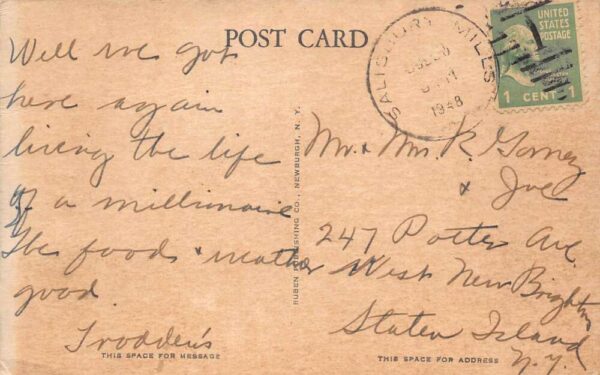 POST CARD
Well we got
here again
living the life
of a millionaire
The foods & weather
good
Trodden's
THIS SPACE FOR MESSAGE
RUBEN PUBLISHING CO., NEWBURGH, N. Y.
SALISBURY MILLS
1948
UNITED
STATES
POSTAGE
1 CENT 1
Mr. & Mrs. R. Gorney
& Joe
247 Potter Ave.
West New Brighton
Staten Island
N.Y.
THIS SPACE FOR ADDRESS